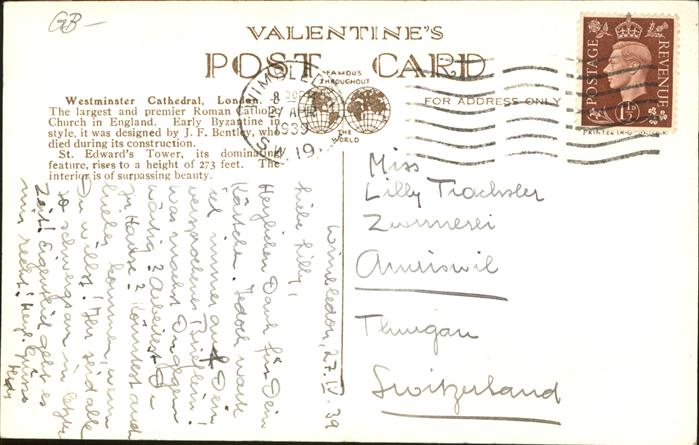 GB-
VALENTINE'S
POST CARD
FAMOUS
THROUGHOUT
THE
WORLD
FOR ADDRESS ONLY
PRINTED IN
WIMBLEDON
8
27 APR
1939
S.W.19.
POSTAGE
REVENUE
1½D
Westminster Cathedral, London.
The largest and premier Roman Catholic
Church in England. Early Byzantine in
style, it was designed by J. F. Bentley, who
died during its construction.
St. Edward's Tower, its dominating
feature, rises to a height of 273 feet. The
interior is of surpassing beauty.
Miss
Lilly Trachsler
Zwirnerei
Amriswil
Thurgau
Switzerland
Wimbledon, 27. IV. 39
Liebe Lilly,
Herzlichen Dank für Dein
Kärtchen. Jedoch warte
ich immer auf Dein
versprochenes Brieflein!
was machst Du gegen-
wärtig? Arbeitest Du
zu Hause? Könntest auch
hieher kommen, wenn
Du willst! Ihr seid alle
so schweigsam in letzter
Zeit! Eigentlich geht es
mir recht! Herzl. Grüsse
Hedy